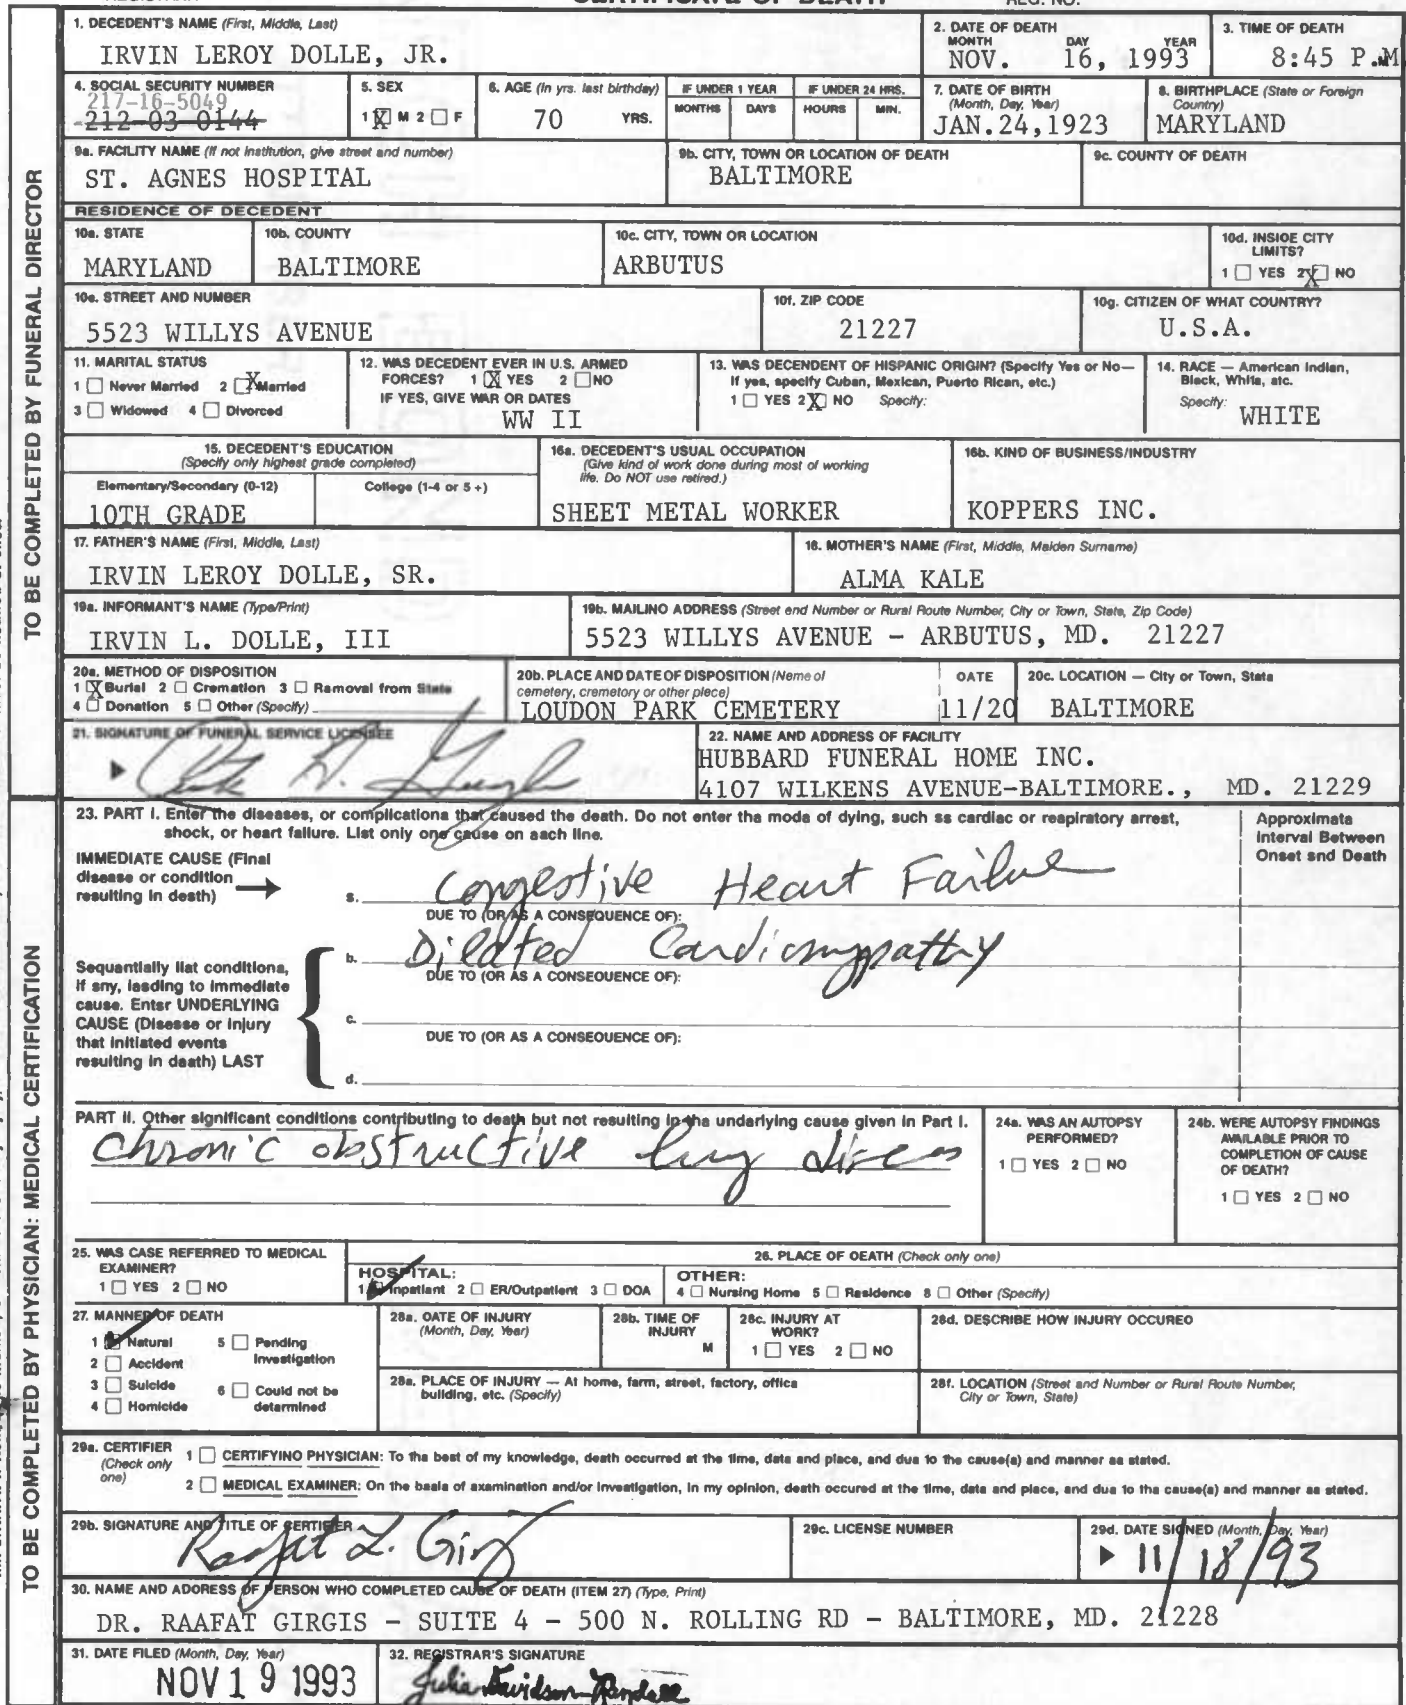 CERTIFICATE OF DEATH
REG. NO.
1. DECEDENT'S NAME (First, Middle, Last)
IRVIN LEROY DOLLE, JR.
2. DATE OF DEATH
MONTH DAY YEAR
NOV. 16, 1993
3. TIME OF DEATH
8:45 P.M
4. SOCIAL SECURITY NUMBER
217-16-5049
212-03-0144
5. SEX
1 X M 2 F
6. AGE (In yrs. last birthday)
70 YRS.
IF UNDER 1 YEAR
MONTHS DAYS
IF UNDER 24 HRS.
HOURS MIN.
7. DATE OF BIRTH
(Month, Day, Year)
JAN.24,1923
8. BIRTHPLACE (State or Foreign
Country)
MARYLAND
9a. FACILITY NAME (If not institution, give street and number)
ST. AGNES HOSPITAL
9b. CITY, TOWN OR LOCATION OF DEATH
BALTIMORE
9c. COUNTY OF DEATH
RESIDENCE OF DECEDENT
10a. STATE
MARYLAND
10b. COUNTY
BALTIMORE
10c. CITY, TOWN OR LOCATION
ARBUTUS
10d. INSIDE CITY
LIMITS?
1 YES 2 X NO
10e. STREET AND NUMBER
5523 WILLYS AVENUE
10f. ZIP CODE
21227
10g. CITIZEN OF WHAT COUNTRY?
U.S.A.
11. MARITAL STATUS
1 Never Married 2 X Married
3 Widowed 4 Divorced
12. WAS DECEDENT EVER IN U.S. ARMED
FORCES? 1 X YES 2 NO
IF YES, GIVE WAR OR DATES
WW II
13. WAS DECENDENT OF HISPANIC ORIGIN? (Specify Yes or No—
If yes, specify Cuban, Mexican, Puerto Rican, etc.)
1 YES 2 X NO Specify:
14. RACE — American Indian,
Black, White, etc.
Specify:
WHITE
15. DECEDENT'S EDUCATION
(Specify only highest grade completed)
Elementary/Secondary (0-12) College (1-4 or 5 +)
10TH GRADE
16a. DECEDENT'S USUAL OCCUPATION
(Give kind of work done during most of working
life. Do NOT use retired.)
SHEET METAL WORKER
16b. KIND OF BUSINESS/INDUSTRY
KOPPERS INC.
17. FATHER'S NAME (First, Middle, Last)
IRVIN LEROY DOLLE, SR.
18. MOTHER'S NAME (First, Middle, Maiden Surname)
ALMA KALE
19a. INFORMANT'S NAME (Type/Print)
IRVIN L. DOLLE, III
19b. MAILING ADDRESS (Street and Number or Rural Route Number, City or Town, State, Zip Code)
5523 WILLYS AVENUE - ARBUTUS, MD. 21227
20a. METHOD OF DISPOSITION
1 X Burial 2 Cremation 3 Removal from State
4 Donation 5 Other (Specify)
20b. PLACE AND DATE OF DISPOSITION (Name of
cemetery, crematory or other place)
LOUDON PARK CEMETERY
DATE
11/20
20c. LOCATION — City or Town, State
BALTIMORE
21. SIGNATURE OF FUNERAL SERVICE LICENSEE
22. NAME AND ADDRESS OF FACILITY
HUBBARD FUNERAL HOME INC.
4107 WILKENS AVENUE-BALTIMORE., MD. 21229
TO BE COMPLETED BY FUNERAL DIRECTOR
23. PART I. Enter the diseases, or complications that caused the death. Do not enter the mode of dying, such as cardiac or respiratory arrest,
shock, or heart failure. List only one cause on each line.
Approximate
Interval Between
Onset and Death
IMMEDIATE CAUSE (Final
disease or condition
resulting in death)
a. Congestive Heart Failure
DUE TO (OR AS A CONSEQUENCE OF):
b. Dilated Cardiomyopathy
DUE TO (OR AS A CONSEQUENCE OF):
Sequentially list conditions,
if any, leading to immediate
cause. Enter UNDERLYING
CAUSE (Disease or injury
that initiated events
resulting in death) LAST
c.
DUE TO (OR AS A CONSEQUENCE OF):
d.
PART II. Other significant conditions contributing to death but not resulting in the underlying cause given in Part I.
Chronic obstructive lung
24a. WAS AN AUTOPSY
PERFORMED?
1 YES 2 NO
24b. WERE AUTOPSY FINDINGS
AVAILABLE PRIOR TO
COMPLETION OF CAUSE
OF DEATH?
1 YES 2 NO
25. WAS CASE REFERRED TO MEDICAL
EXAMINER?
1 YES 2 NO
26. PLACE OF DEATH (Check only one)
HOSPITAL:
1 Inpatient 2 ER/Outpatient 3 DOA
OTHER:
4 Nursing Home 5 Residence 8 Other (Specify)
27. MANNER OF DEATH
1 Natural 5 Pending
Investigation
2 Accident
3 Suicide 6 Could not be
determined
4 Homicide
28a. DATE OF INJURY
(Month, Day, Year)
28b. TIME OF
INJURY
M
28c. INJURY AT
WORK?
1 YES 2 NO
28d. DESCRIBE HOW INJURY OCCURED
28e. PLACE OF INJURY — At home, farm, street, factory, office
building, etc. (Specify)
28f. LOCATION (Street and Number or Rural Route Number,
City or Town, State)
29a. CERTIFIER
(Check only
one)
1 CERTIFYING PHYSICIAN: To the best of my knowledge, death occurred at the time, date and place, and due to the cause(s) and manner as stated.
2 MEDICAL EXAMINER: On the basis of examination and/or investigation, in my opinion, death occured at the time, date and place, and due to the cause(s) and manner as stated.
29b. SIGNATURE AND TITLE OF CERTIFIER
Raafat L. Girgis
29c. LICENSE NUMBER
29d. DATE SIGNED (Month, Day, Year)
11/18/93
30. NAME AND ADDRESS OF PERSON WHO COMPLETED CAUSE OF DEATH (ITEM 27) (Type, Print)
DR. RAAFAT GIRGIS - SUITE 4 - 500 N. ROLLING RD - BALTIMORE, MD. 21228
31. DATE FILED (Month, Day, Year)
NOV 19 1993
32. REGISTRAR'S SIGNATURE
Julia Davidson-Randall
TO BE COMPLETED BY PHYSICIAN: MEDICAL CERTIFICATION